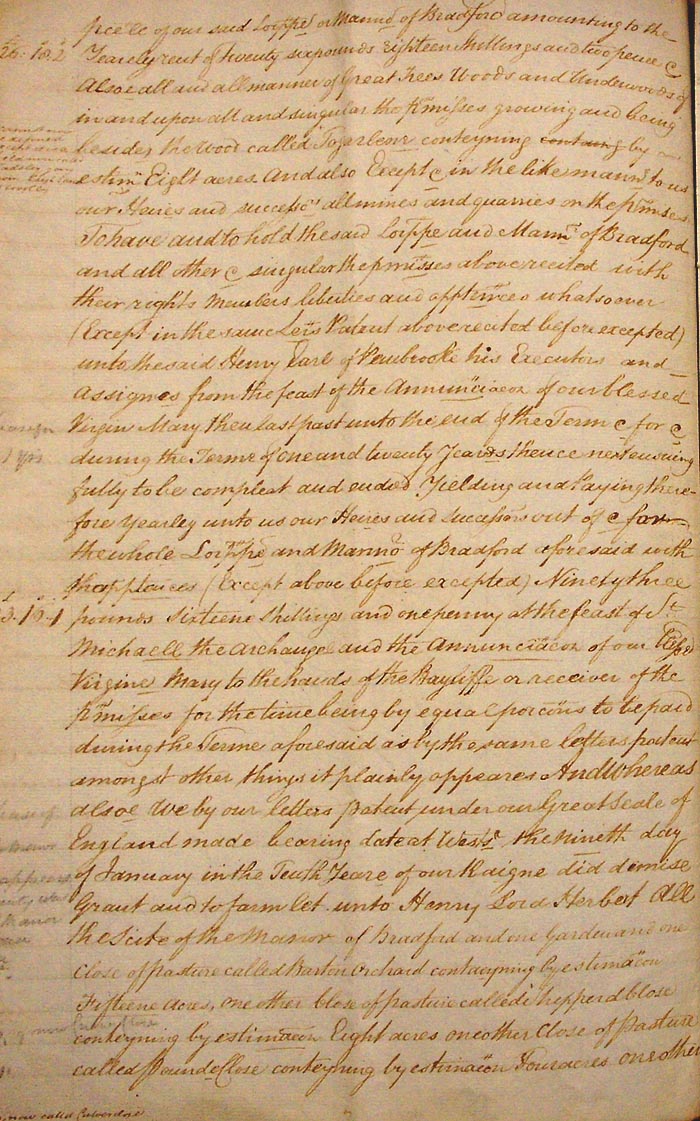 pcell of our said Lorppe or Mannor of Bradford amounting to the
26. 18. 2
Yearely rent of twenty six pounds Eighteen shillings and two pence &
Alsoe all and all manner of Great Trees Woods and Underwoods of
in and upon all and singular the p'misses growing and being
besides the Wood called conteyning by
estim Eight acres And also Except & in the like mann'r to us
our Heires and success'rs all mines and quarries on the p'misses
To have and to hold the said Lorppe and Mann'r of Bradford
and all other & singular the p'misses above recited with
their rights members liberties and apptennces whatsoever
(Except in the same Leirs Patent above recited before excepted)
unto the said Henry Earl of Pembrooke his Executors and
Assignes from the feast of the Annunciacon of our blessed
Virgin Mary then last past unto the end of the Term & for &
during the Terme of one and twenty Yeares thence next ensuing
fully to be compleat and ended Yielding and Paying there-
fore Yearley unto us our Heires and successors out of & for
the whole Lorppe and Mannor of Bradford aforesaid with
thapptnces (Except above before excepted) Ninety three
3. 16. 1
pounds sixteene shillings and one penny at the feast of St
Michaell the Archangel and the Annunciacon of our Blessed
Virgine Mary to the hands of the Bayliffe or receiver of the
p'misses for the time being by equal porcons to be paid
during the Terme aforesaid as by the same letters patent
amongst other things it plainly appeares And Whereas
alsoe We by our letters Patent under our Great Seale of
England made bearing date at West'r the Nineth day
of January in the Tenth Yeare of our Raigne did demise
Grant and to farm let unto Henry Lord Herbert All
the Scite of the Manor of Bradford and one Garden and one
Close of pasture called Barton Orchard conteyning by estimacon
Fifteene Acres, one other Close of pasture called Shepperd Close
conteyning by estimacon Eight acres one other Close of Pasture
called Pound Close conteyning by estimacon Four acres one other
now called Culverclose